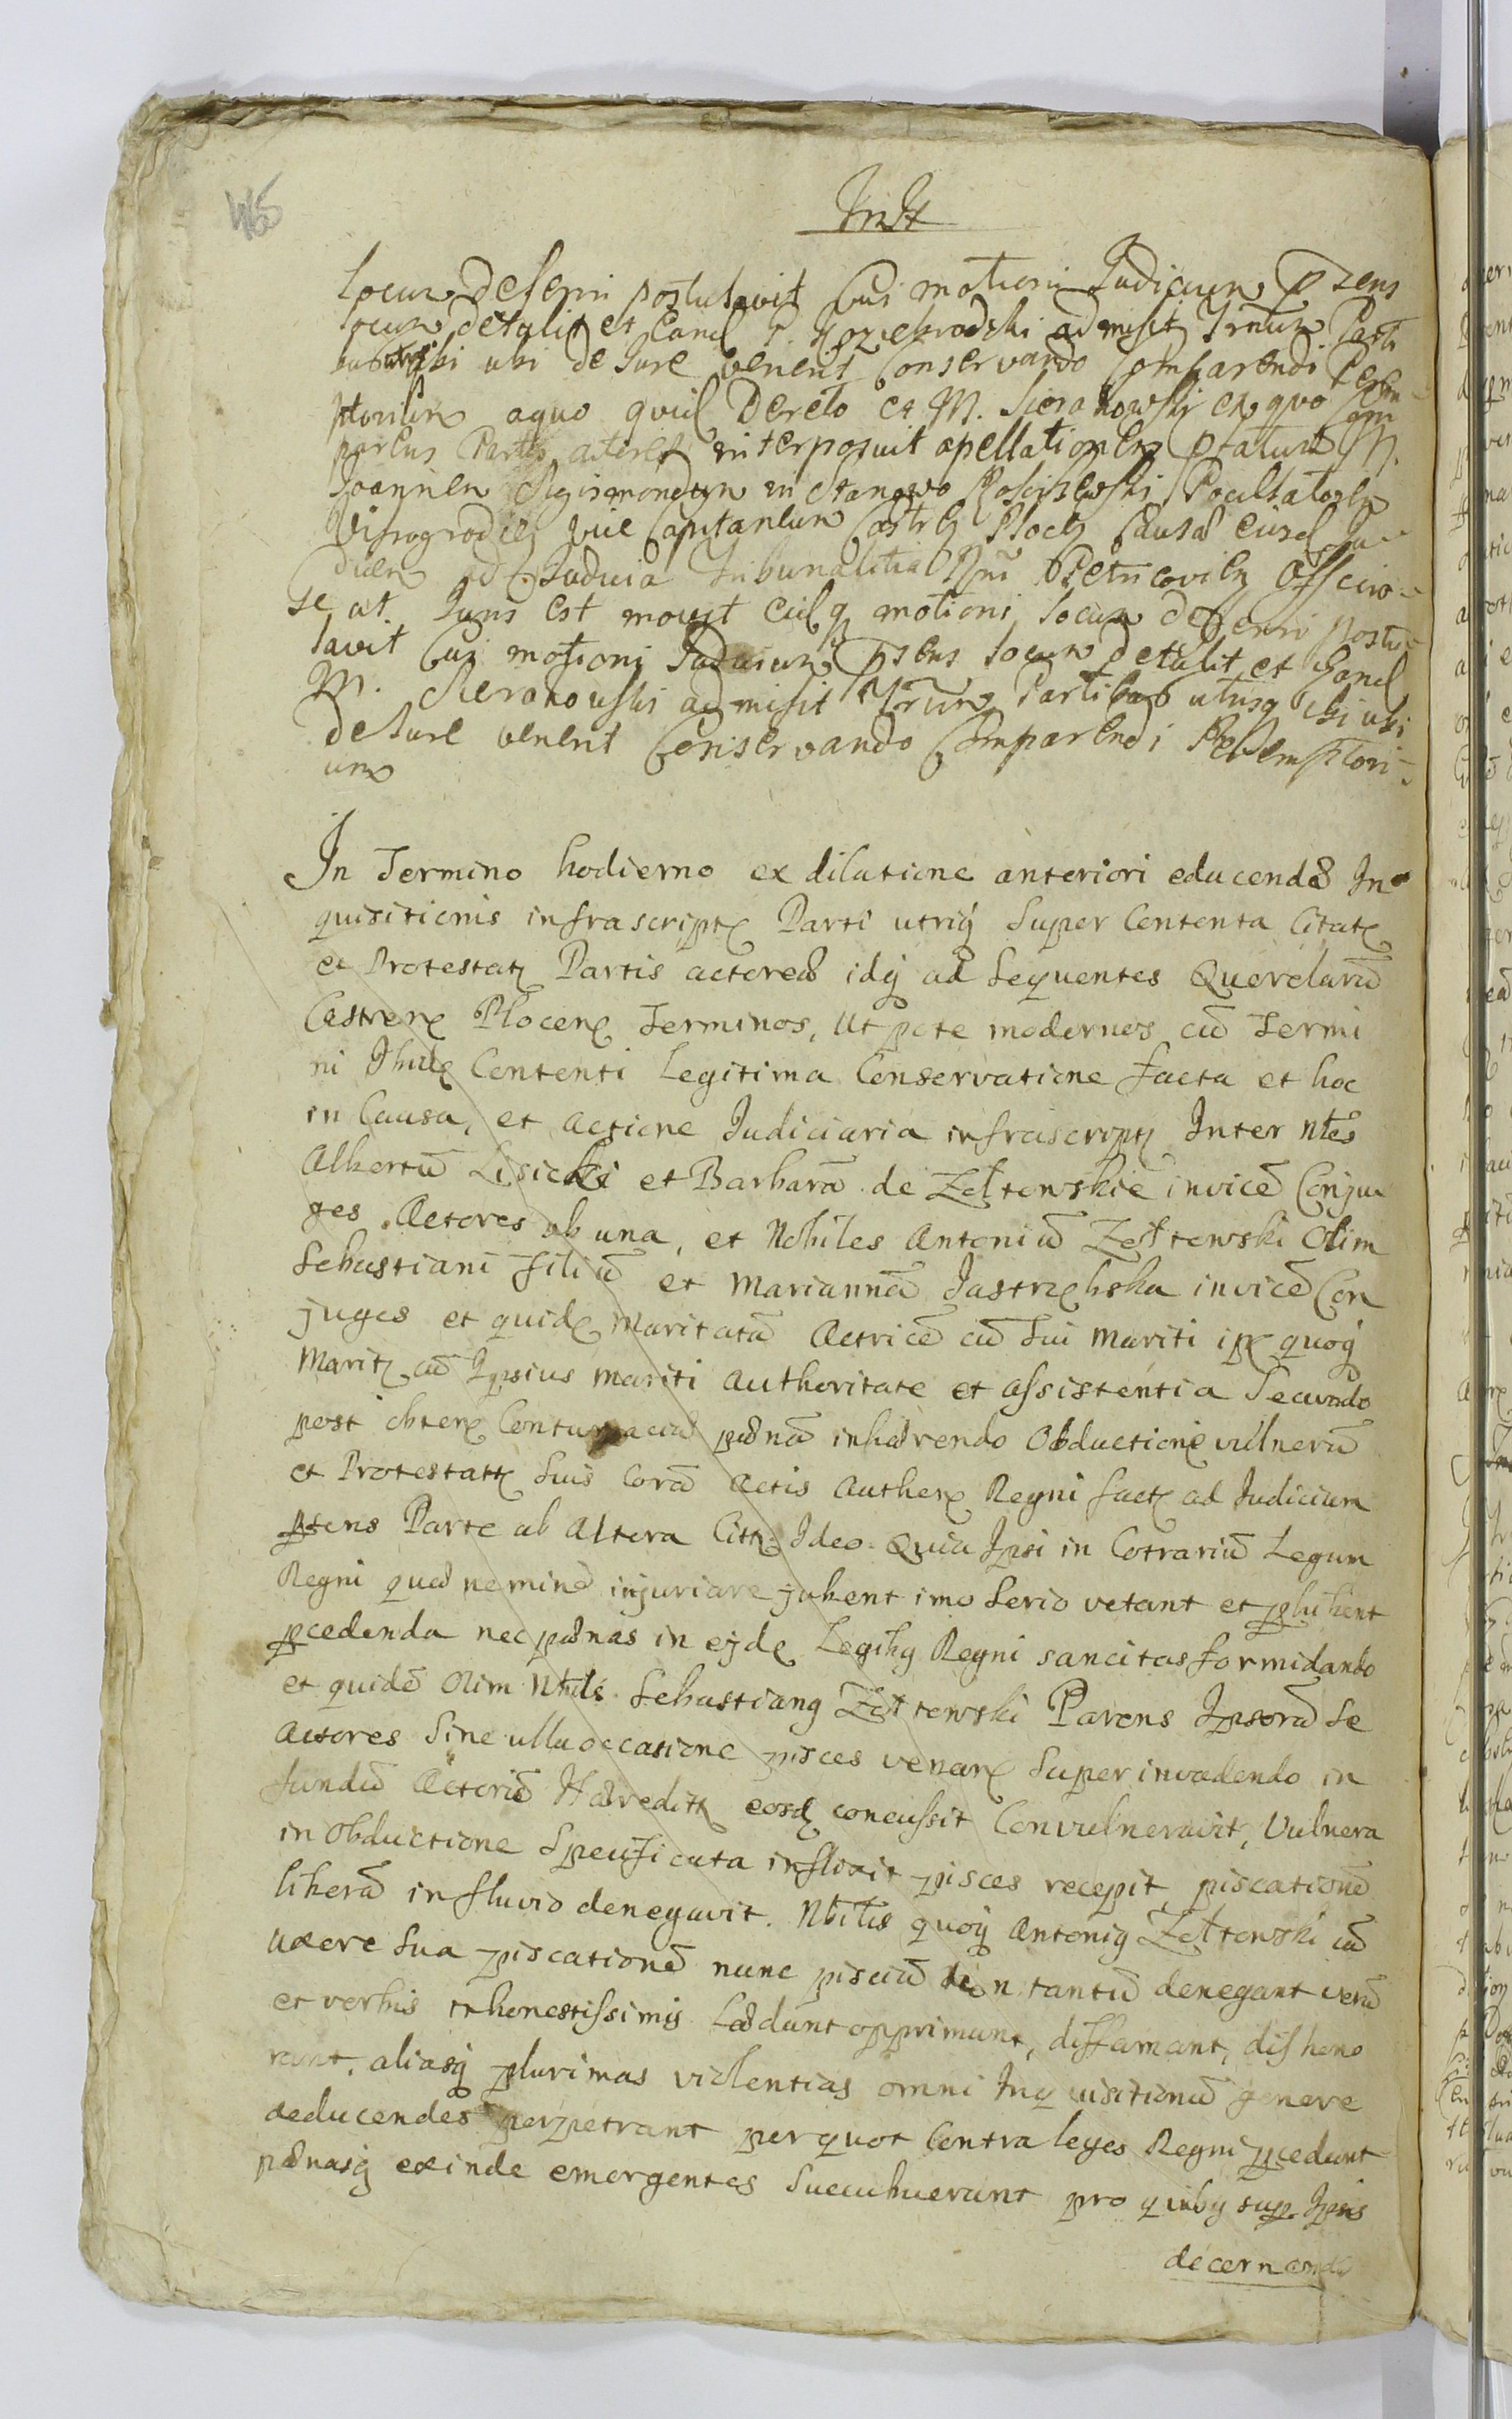 locum deferri postulavit Cui motioni Judicium p̄sens
locum detulit et Eand P. Krzickrodzki admisit Trnum Parti
bus ibi ubi de Jure venerit Conservando Comparendi Perem
ptorium a quo quid Decreto et M. Sierakowski ex quo Com
parens Partis actoreæ interposuit apellationem
Joannem Sigismondum in Stanowo
Visrogrodien vice Capitaneum Castren Plocen Causæ eiusd Ju-
dicem ad Judicia Tribunalitia Rgni Petricovien Officio-
se at Juris est movit Eidq motioni locum deferri postu-
lavit Cui motioni Judicium p̄sens locum detulit et Eand
M. Sierakowski admisit Trnum Partibus utrisq ibi ubi
de Jure venerit Conservando Comparendi Peremptori-
um
In Termino hodierno ex dilatione anteriori educendæ In
quisitionis infrascriptę Parti utriq́ Super Contenta Citatę
et Protestatę Partis actoreæ idq́ ad Sequentes Querelarū
Castrenę Plocenę Terminos, Ut pote modernos cū Termi
ni Contenti Legitima Conservatione facta et hoc
in Causa, et actione Judiciaria infrascriptę Inter Nb̄les
Albertū Lisicki et Barbarā de Zołtowskie invicē Conju
ges Actores ab una, et Nobiles Antoniū Zołtowski Olim
Sebastiani filiū et Mariannā Jastrzębska invicē Con
juges et quidę Maritatā Actricē cū Sui Mariti ipę quoq́
Maritę cū Ipsius mariti Authoritate et assistentia Secundo
post obtenę Contumaciā pænā inhærendo Obductionē vulnerū
et Protestattę Suis Corā Actis Authenę Regni factę ad Judicium
p̄sens Parte ab Altera Cittę Ideo Quia Ipsi in Cotrariū Legum
Regni quæ neminē injuriare jubent imo Serio vetant et p̱hibent
p̱cedenda nec pænas in ejdę Legibg Regni sancitas formidando
et quidē Olim Nb̄lis Sebastiang Zołtowski Parens Ipsorū Se
Actores Sine ulla occasione pisces venanę Super invadendo in
fundū Actoriū Hæredittę eosdę concussit Convulneravit, Vulnera
in Obductione Specificata inflixit pisces recepit, piscationē
liberā in fluvio denegavit. Nb̄ilis quoq́ Antonig Zołtowski cū
Uxore Sua piscationē nunc pisciū non tantū denegant verū
et verbis inhonestissimis Lædunt opprimunt, diffamant, dishono
rant, aliasq́ plurimas violentias omni Inquisitionū genere
deducendes perpetrant per quot Contra leges Regni p̱cedunt
pænasq́ exinde emergentes Succubuerunt pro quibg sup. Ipsis
decernendo